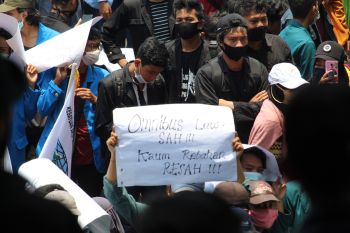 Omnibus Law
SAH !!!
Kaum Rebahan
RESAH !!!